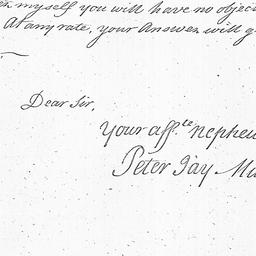 myself you will have no objec
At any rate, your Answer will g
Dear Sir,
Your aff.te nephew
Peter Jay Mu